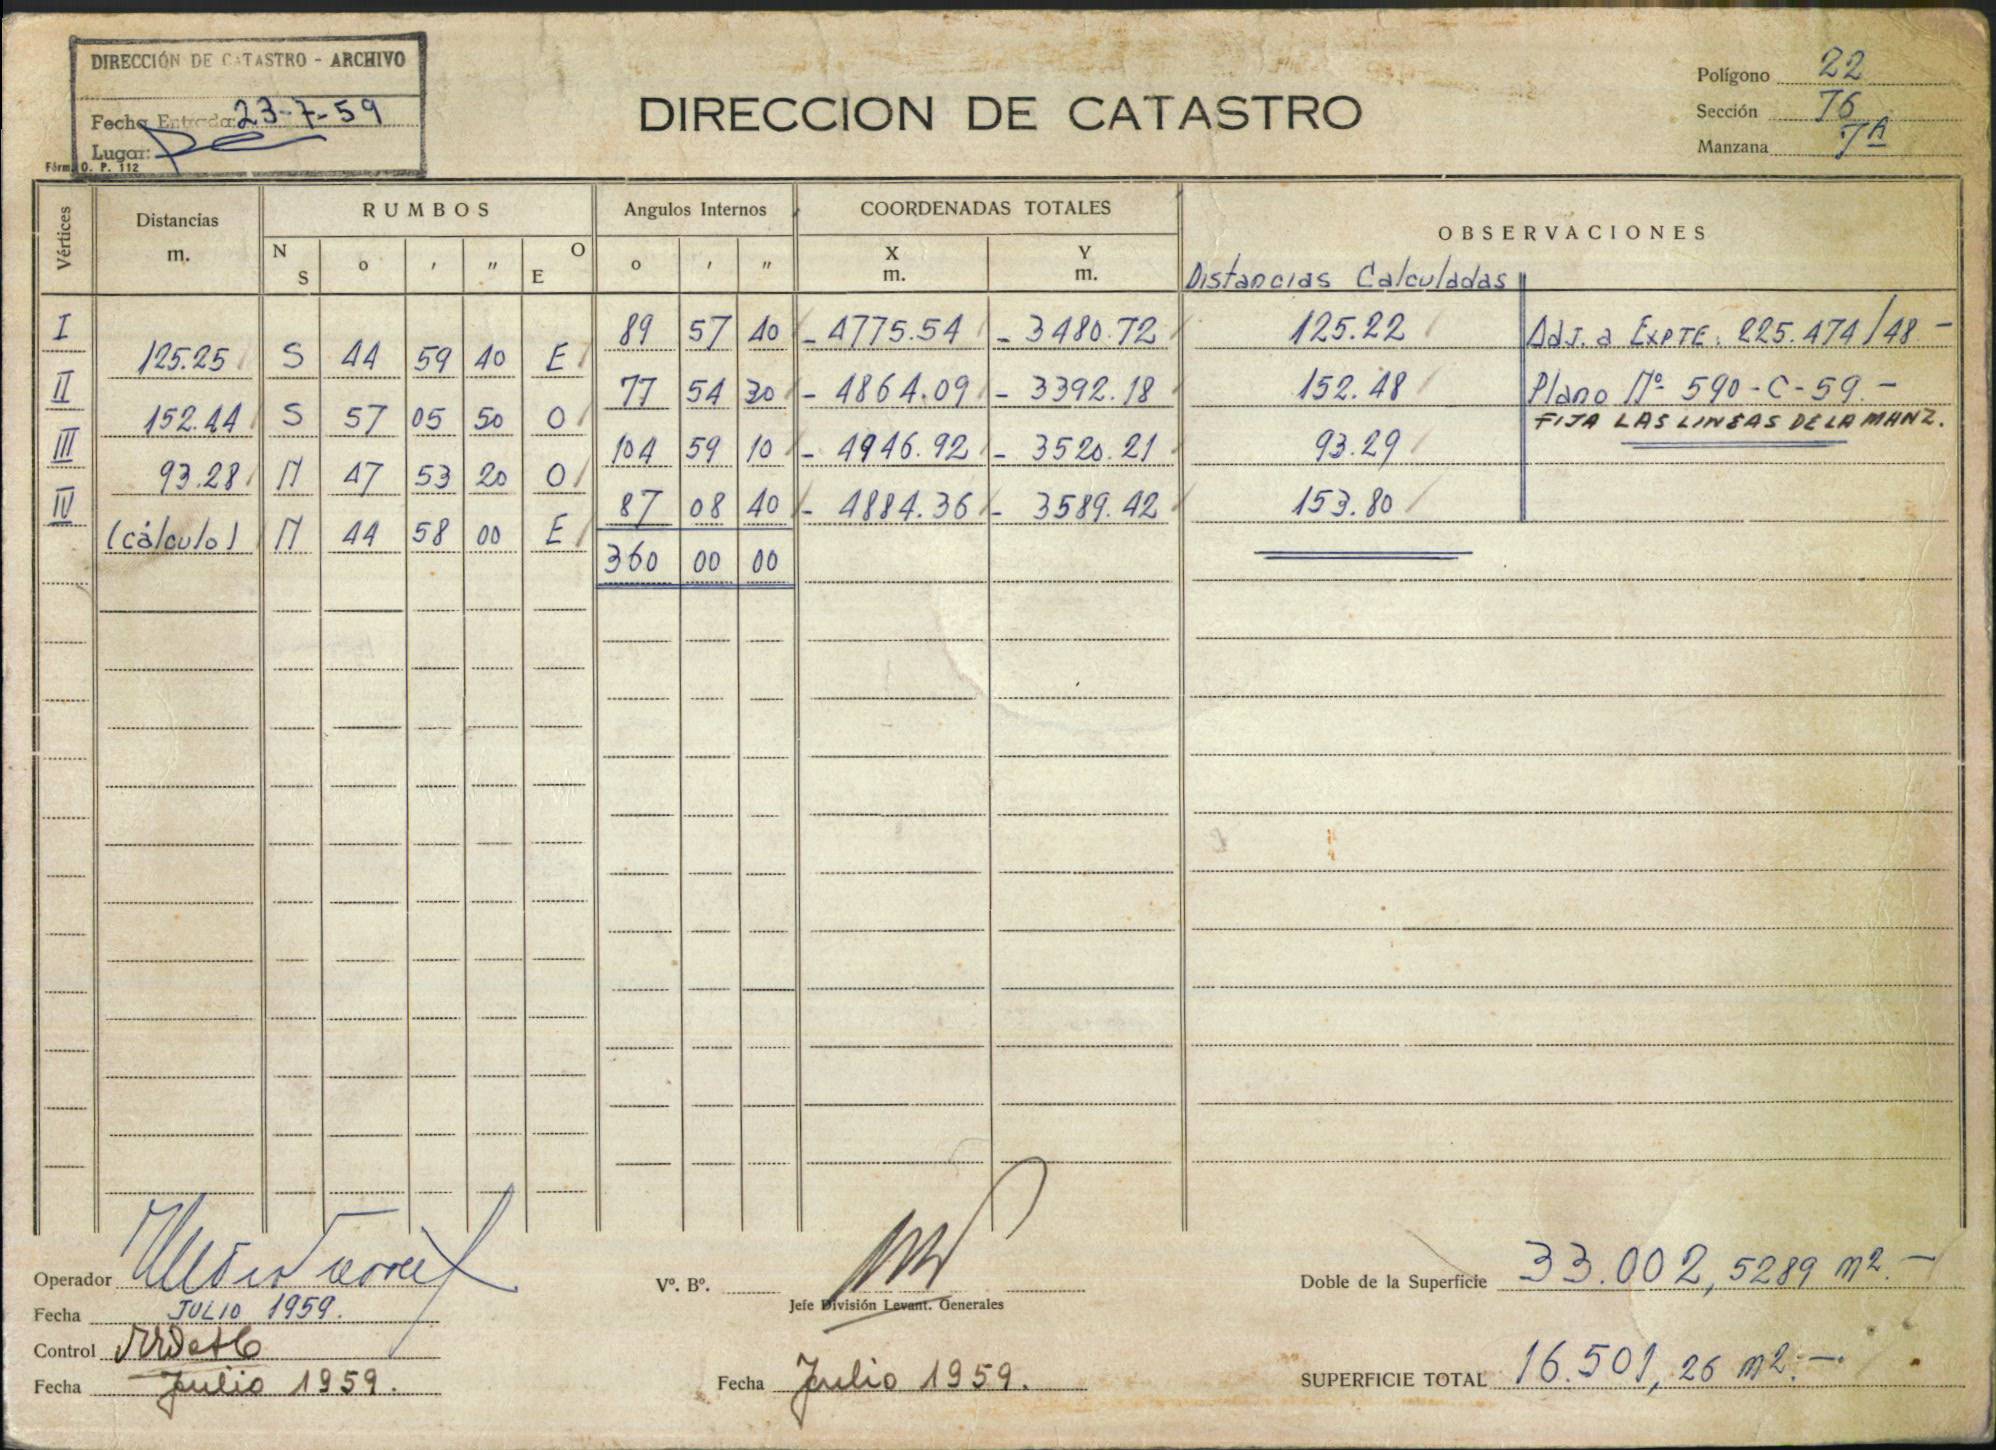 DIRECCIÓN DE CATASTRO - ARCHIVO
Fecha Entrada: 23-7-59
Lugar:
Fórm. O. P. 112
DIRECCION DE CATASTRO
Polígono 22
Sección 76
Manzana 7A
Vértices Distancias m. RUMBOS Angulos Internos COORDENADAS TOTALES OBSERVACIONES
N S o ' " O E o ' " X m. Y m. Distancias Calculadas
I 89 57 40 - 4775.54 - 3480.72 125.22 Adj. a EXPTE: 225.474/48 -
125.25 S 44 59 40 E
II 77 54 30 - 4864.09 - 3392.18 152.48 Plano Nº 590-C-59.-
152.44 S 57 05 50 O FIJA LAS LINEAS DE LA MANZ.
III 104 59 10 - 4946.92 - 3520.21 93.29
93.28 N 47 53 20 O
IV 87 08 40 - 4884.36 - 3589.42 153.80
(cálculo) N 44 58 00 E
360 00 00
Operador
Fecha JULIO 1959.
Control
Fecha Julio 1959.
Vº. Bº.
Jefe División Levant. Generales
Fecha Julio 1959.
Doble de la Superficie 33.002,5289 m2.-
SUPERFICIE TOTAL 16.501,26 m2.-